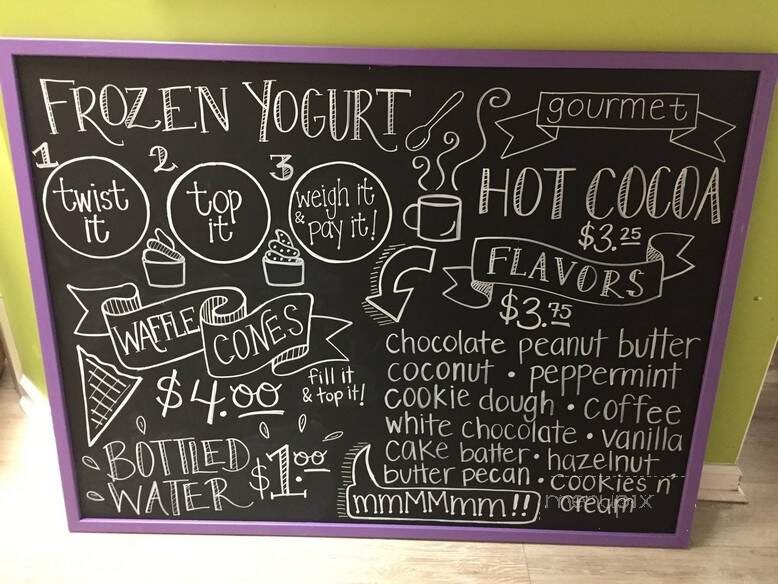 FROZEN YOGURT
1 2 3
twist it
top it
weigh it & pay it!
WAFFLE CONES
$4.00
fill it & top it!
BOTTLED WATER $1.00
gourmet
HOT COCOA
$3.25
FLAVORS
$3.75
chocolate peanut butter
coconut • peppermint
cookie dough • coffee
white chocolate • vanilla
cake batter • hazelnut
butter pecan • cookies n'
cream
mmMMmm!!
menupix